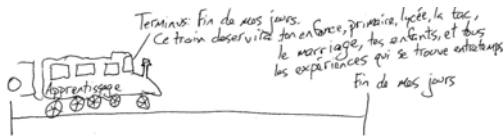 Terminus: Fin de mes jours.
Ce train desservira ton enfance, primaire, lycée, la fac,
le marriage, tes enfants, et tous
les expériences qui se trouve entretemps
Fin de mes jours
Apprentissage